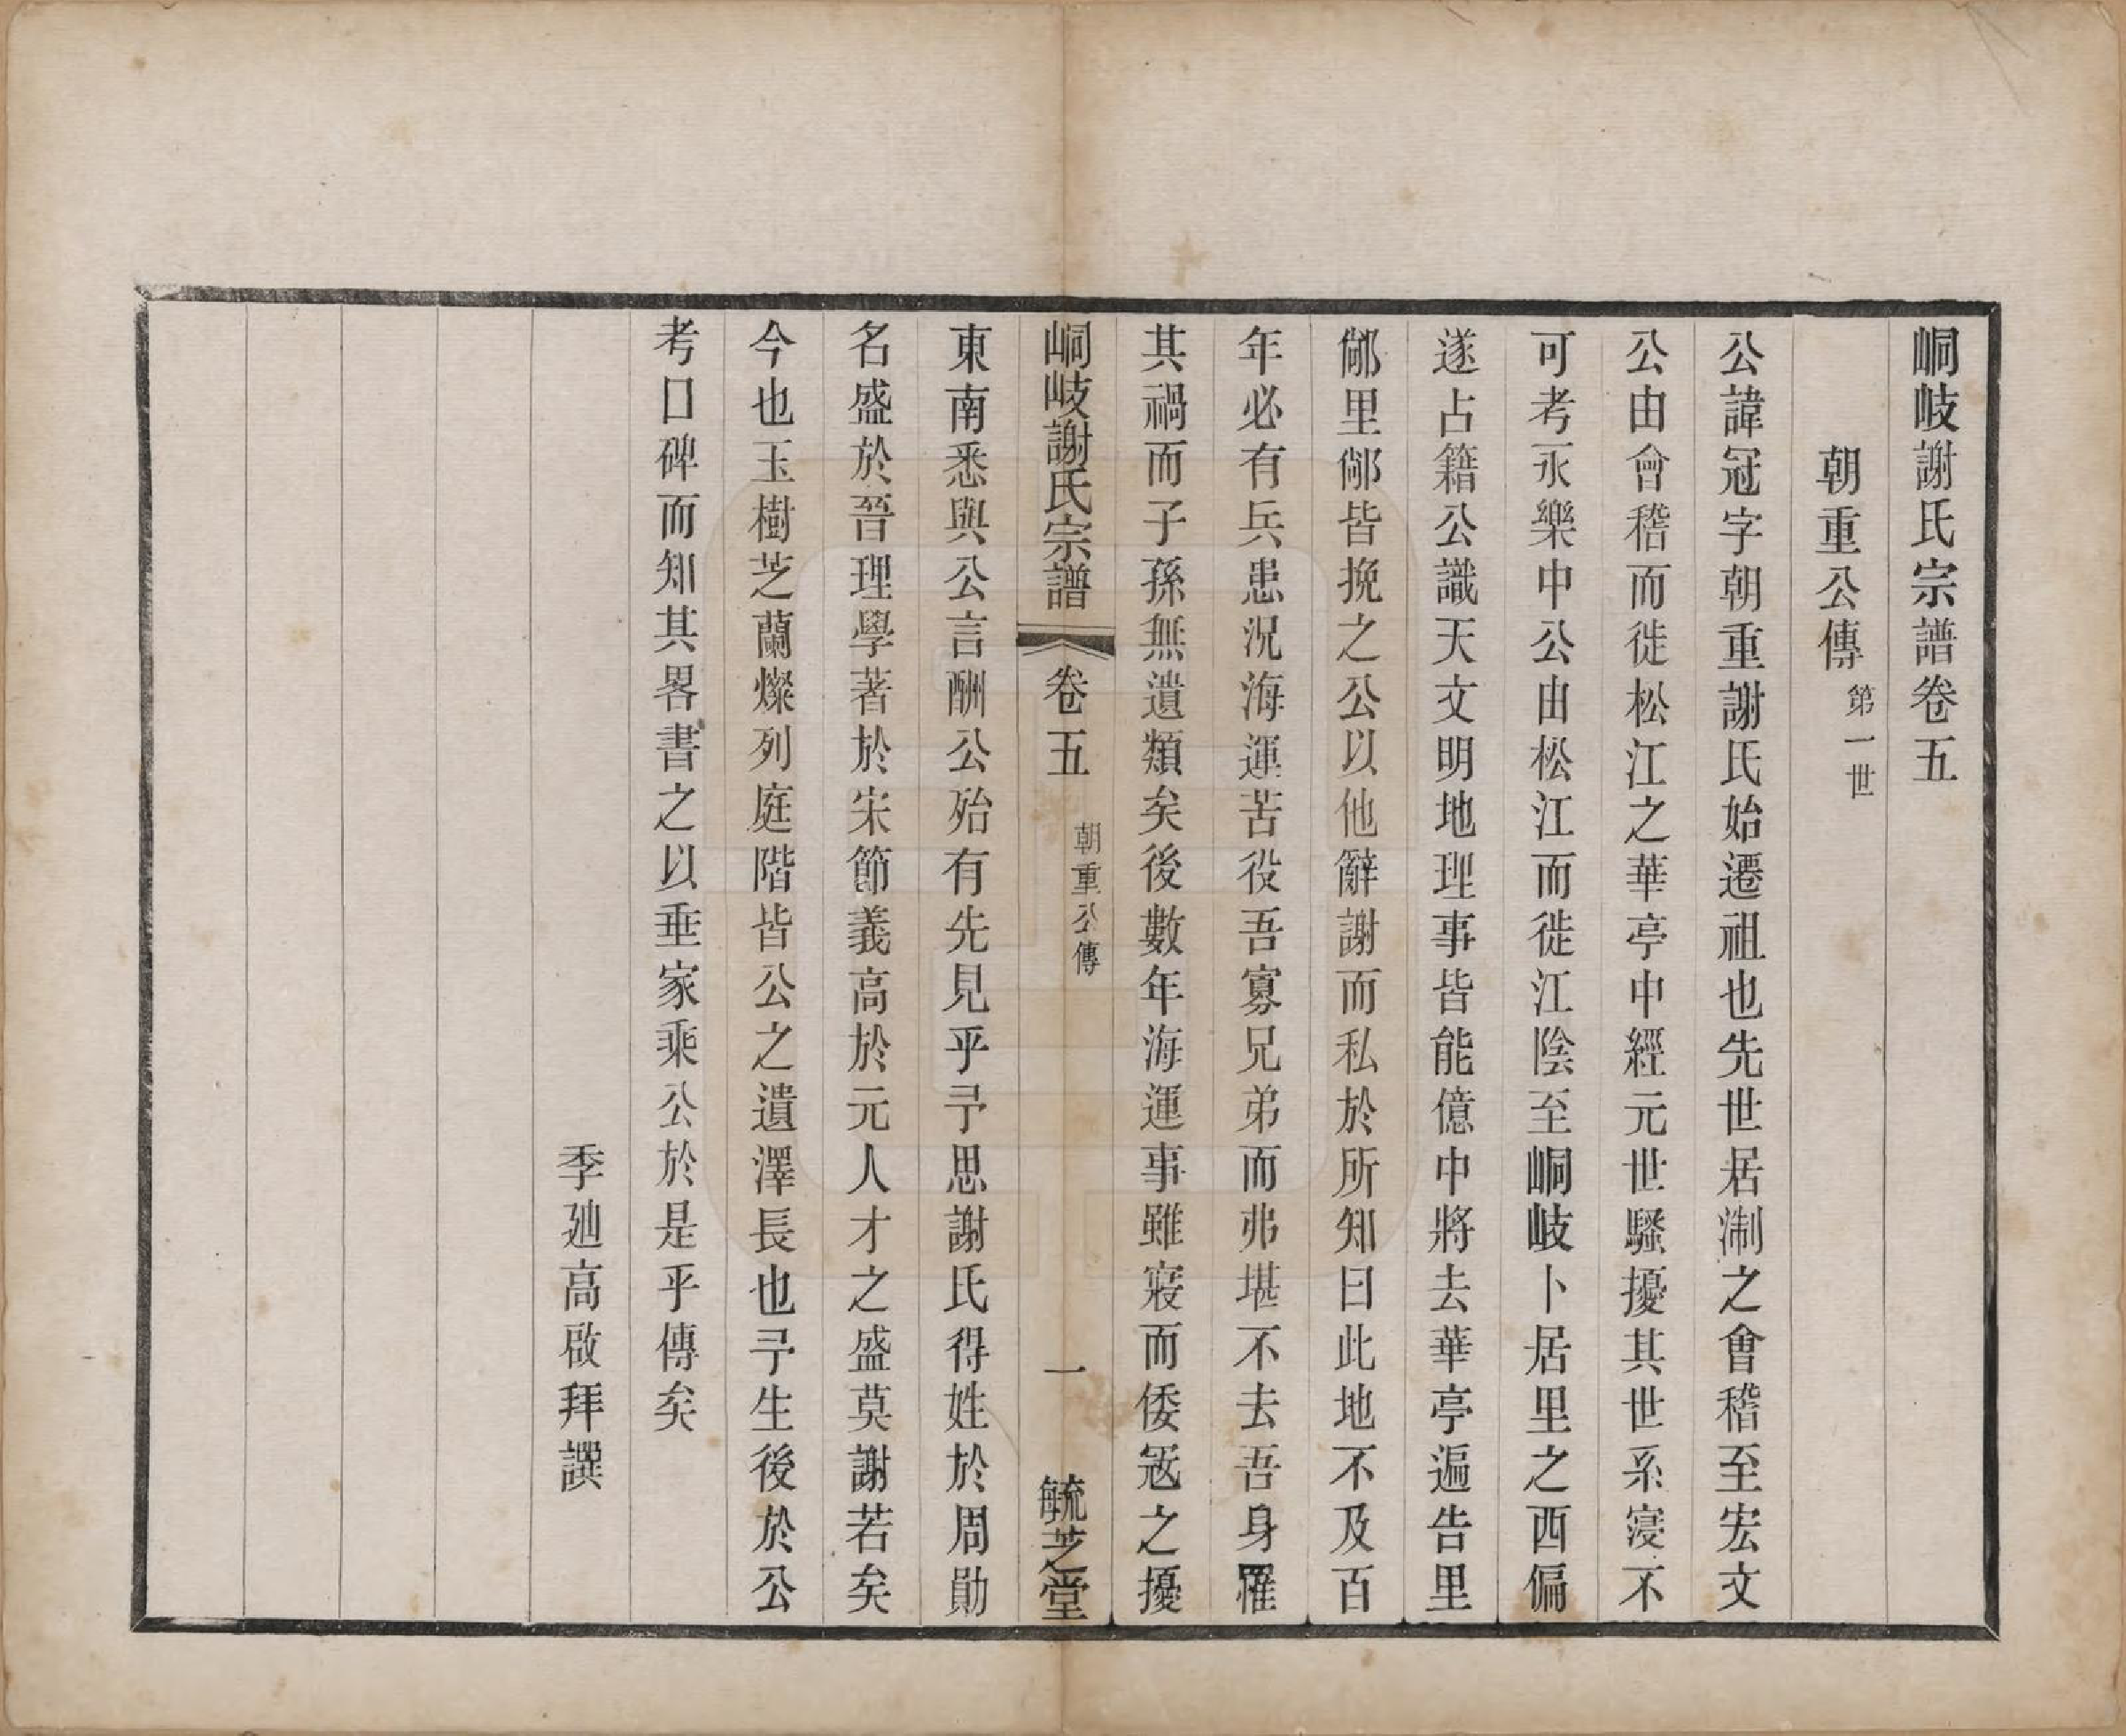 峒岐謝氏宗譜卷五
朝重公傳第一世
公諱冠字朝重謝氏始遷祖也先世居淛之會稽至宏文
公由會稽而徙松江之華亭中經元世騷擾其世系寖不
可考永樂中公由松江而徙江陰至峒岐卜居里之西偏
遂占籍公識天文明地理事皆能億中將去華亭遍告里
鄰里鄰皆挽之公以他辭謝而私於所知曰此地不及百
年必有兵患況海運苦役吾寡兄弟而弗堪不去吾身罹
其禍而子孫無遺類矣後數年海運事雖寢而倭冦之擾
峒岐謝氏宗譜
卷五
朝重公傳
一
毓芝堂
東南悉與公言酬公殆有先見乎予思謝氏得姓於周勛
名盛於晉理學著於宋節義高於元人才之盛莫謝若矣
今也玉樹芝蘭燦列庭階皆公之遺澤長也予生後於公
考口碑而知其畧書之以垂家乘公於是乎傳矣
季廸高啟拜譔